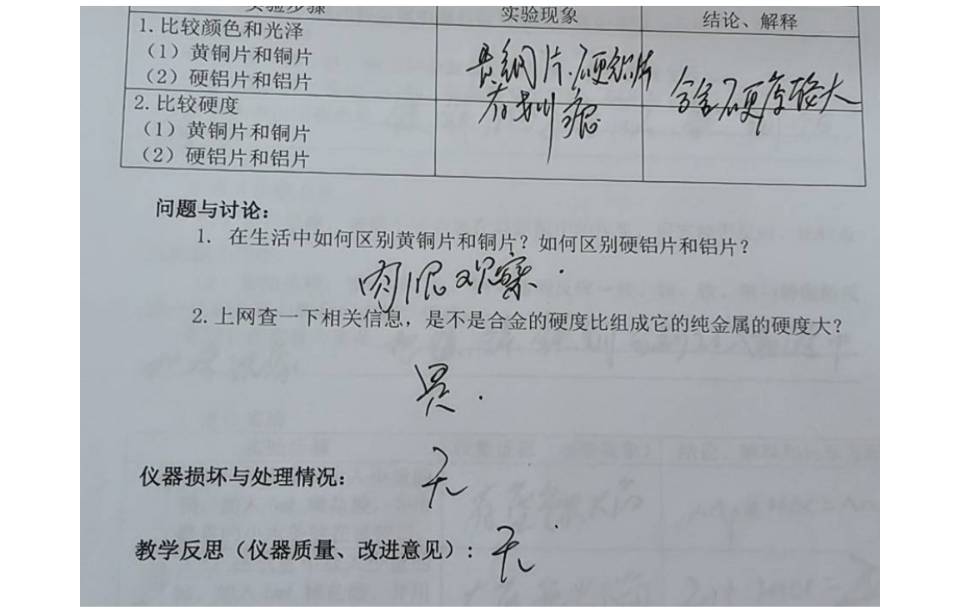 实验步骤 实验现象 结论、解释
1.比较颜色和光泽
（1）黄铜片和铜片
（2）硬铝片和铝片
黄铜片、硬铝片
有划痕
合金硬度较大
2.比较硬度
（1）黄铜片和铜片
（2）硬铝片和铝片
问题与讨论：
1. 在生活中如何区别黄铜片和铜片？如何区别硬铝片和铝片？
肉眼观察.
2.上网查一下相关信息，是不是合金的硬度比组成它的纯金属的硬度大？
是.
仪器损坏与处理情况：无
教学反思（仪器质量、改进意见）：无.